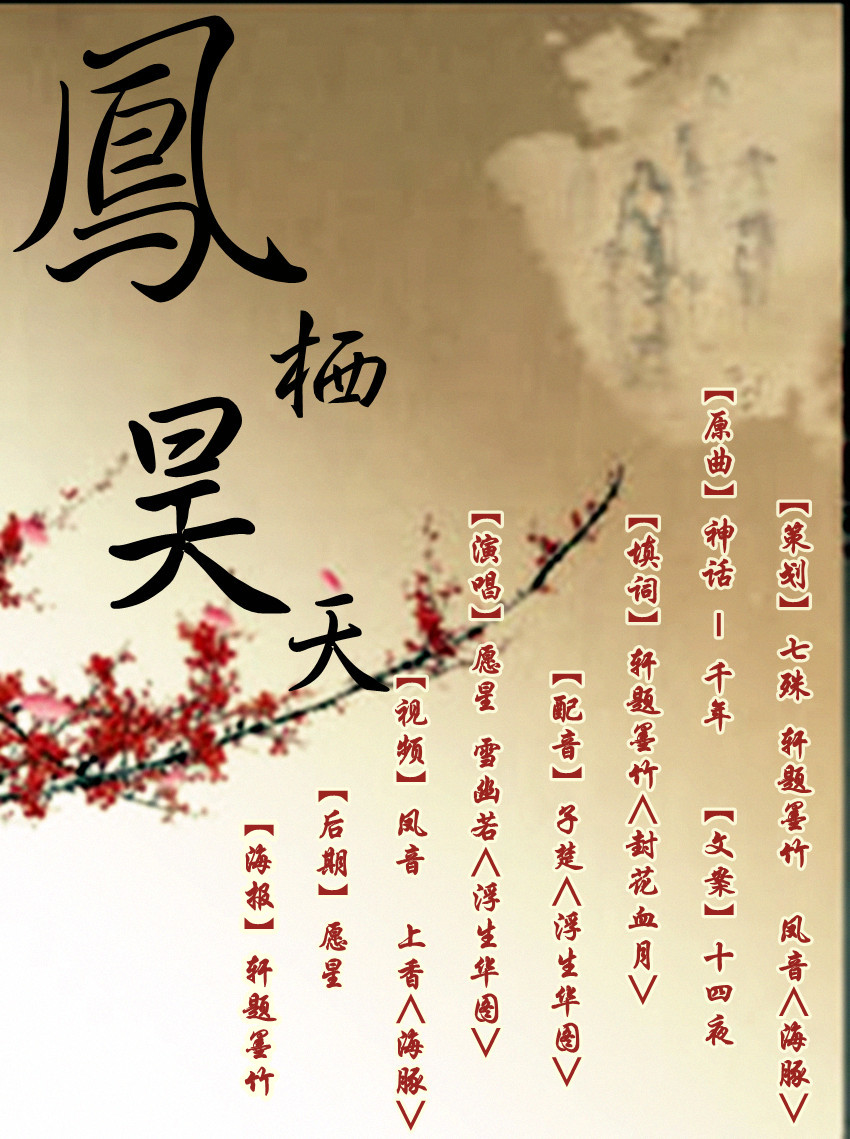 鳳栖昊天
【策划】七殊 轩题墨竹 凤音<海豚>
【原曲】神话 - 千年 【文案】十四夜
【填词】轩题墨竹<封花血月>
【配音】子楚<浮生华图>
【演唱】愿星 雪幽若<浮生华图>
【视频】凤音 上香<海豚>
【后期】愿星
【海报】轩题墨竹